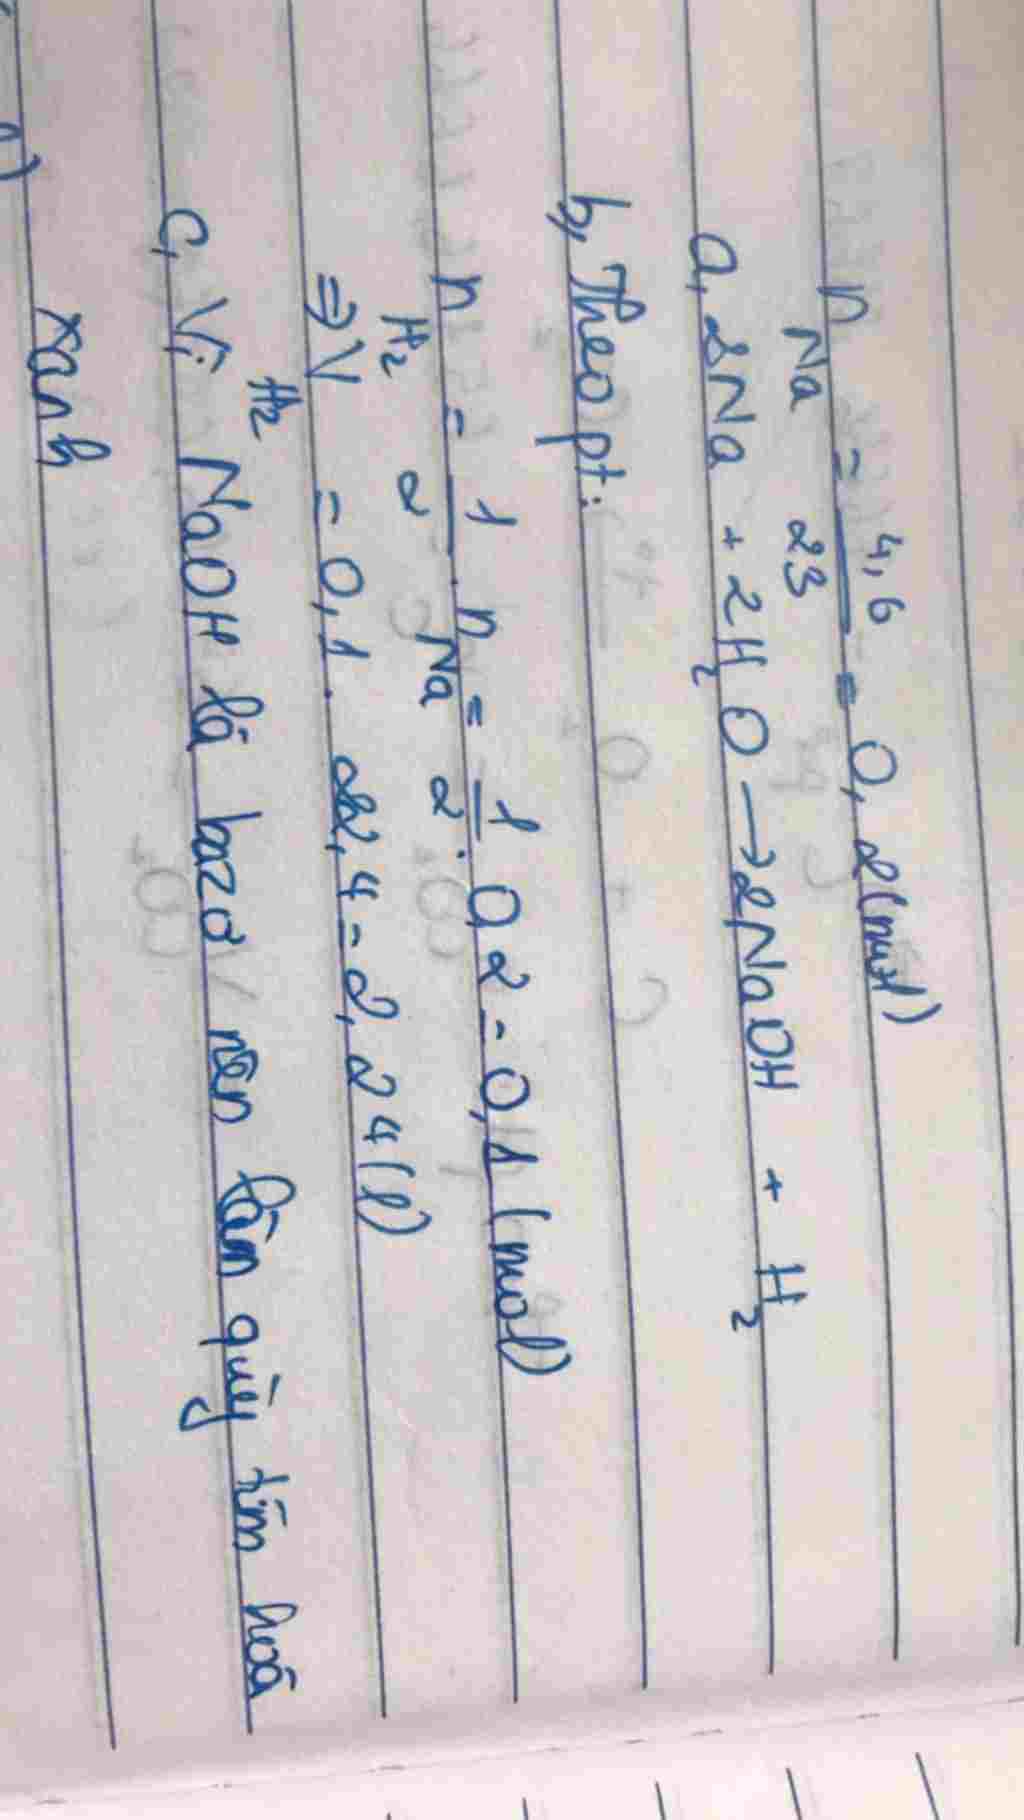 n Na = 4,6 / 23 = 0,2 (mol)
a, 2Na + 2H2O → 2NaOH + H2
b, Theo pt:
n H2 = 1/2 . n Na = 1/2 . 0,2 = 0,1 (mol)
⇒ V H2 = 0,1 . 22,4 = 2,24 (l)
c, Vì NaOH là bazơ nên làm quỳ tím hoá
xanh